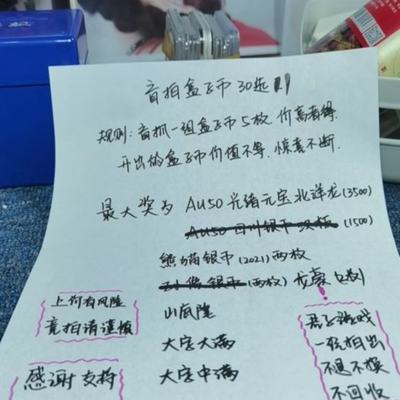 盲拍盒子币 30选
规则：盲抓一组盒子币5枚，价高者得.
开出的盒子币价值不等，惊喜不断.
最大奖为 AU50 光绪元宝北洋龙(3500)
(1500)
熊猫银币 (2021) 两枚
(两枚) 龙
山底隆
大字大满
大字中满
上价有风险
竞拍请谨慎
感谢支持
君子游戏
一经拍出
不退不换
不回收